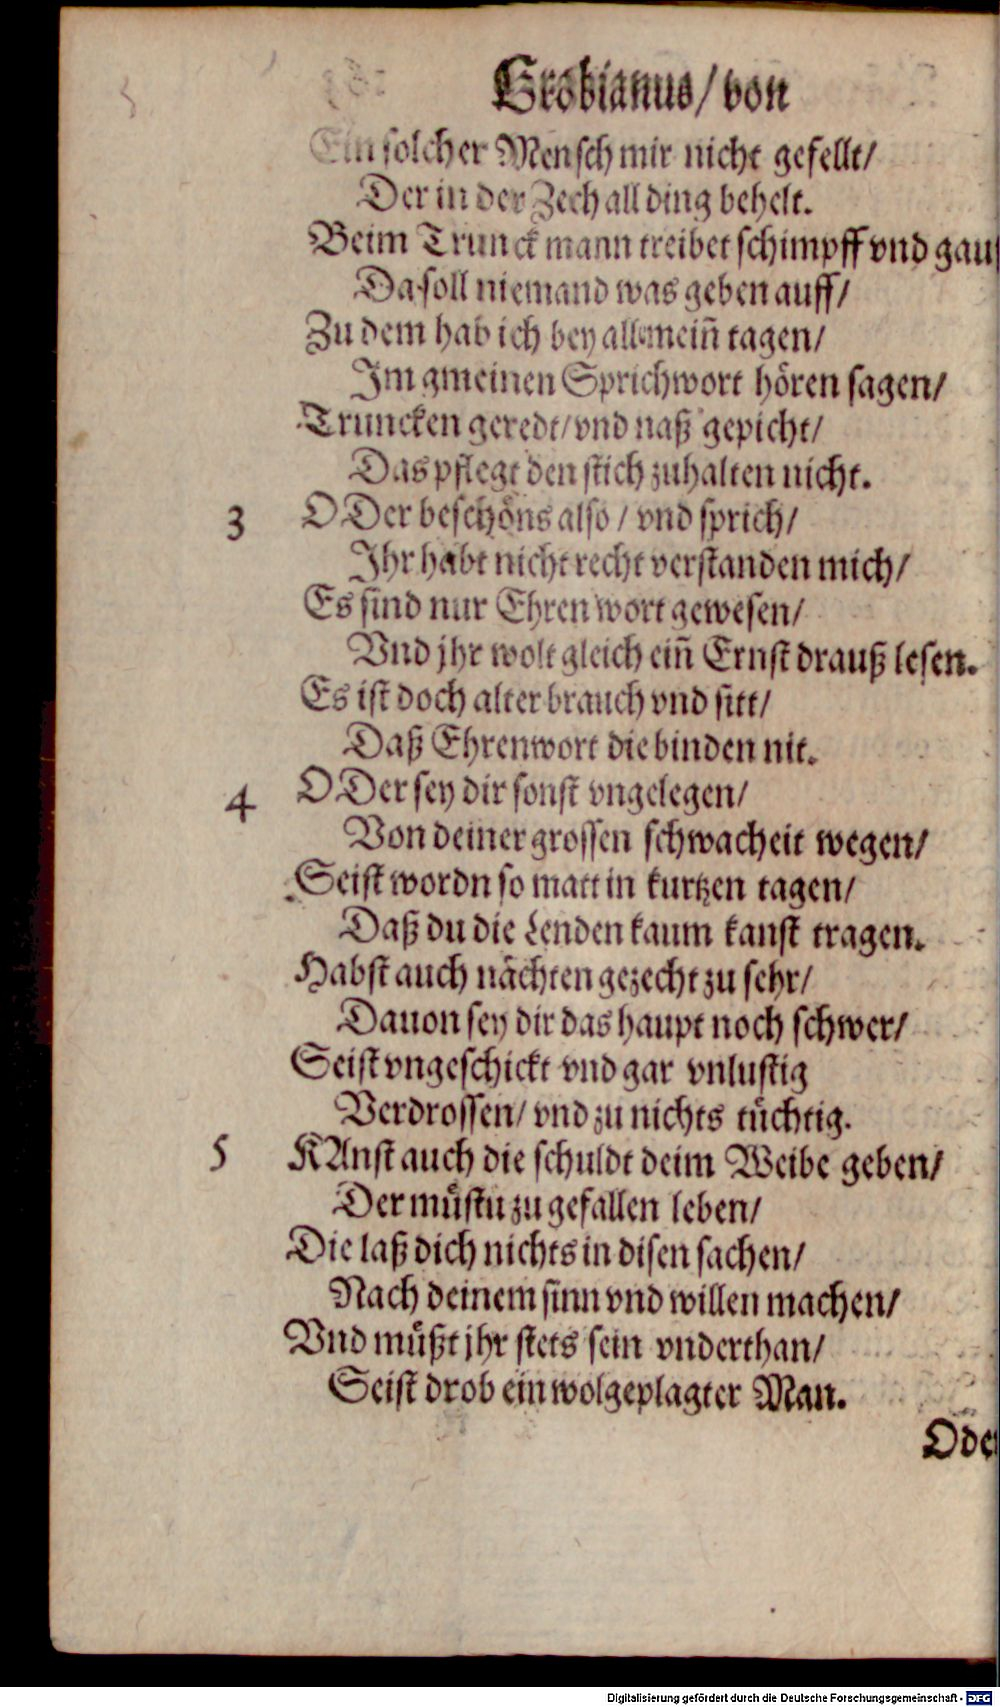 Grobianus/ von
Ein solcher Mensch mir nicht gefellt/
Der in der Zech all ding behelt.
Beim Trunck mann treibet schimpff vnd gau
Da soll niemand was geben auff/
Zu dem hab ich bey all mein̄ tagen/
Im gmeinen Sprichwort hören sagen/
Truncken geredt/ vnd naß gepicht/
Das pflegt den stich zuhalten nicht.
3 ODer beschöns also/ vnd sprich/
Ihr habt nicht recht verstanden mich/
Es sind nur Ehren wort gewesen/
Vnd jhr wolt gleich ein̄ Ernst drauß lesen.
Es ist doch alter brauch vnd sitt/
Daß Ehrenwort die binden nit.
4 ODer sey dir sonst vngelegen/
Von deiner grossen schwacheit wegen/
Seist wordn so matt in kurtzen tagen/
Daß du die Lenden kaum kanst tragen.
Habst auch nächten gezecht zu sehr/
Dauon sey dir das haupt noch schwer/
Seist vngeschickt vnd gar vnlustig
Verdrossen/ vnd zu nichts tüchtig.
5 KAnst auch die schuldt deim Weibe geben/
Der müstu zu gefallen leben/
Die laß dich nichts in disen sachen/
Nach deinem sinn vnd willen machen/
Vnd müßt jhr stets sein vnderthan/
Seist drob ein wolgeplagter Man.
Ode
Digitalisierung gefördert durch die Deutsche Forschungsgemeinschaft - DFG